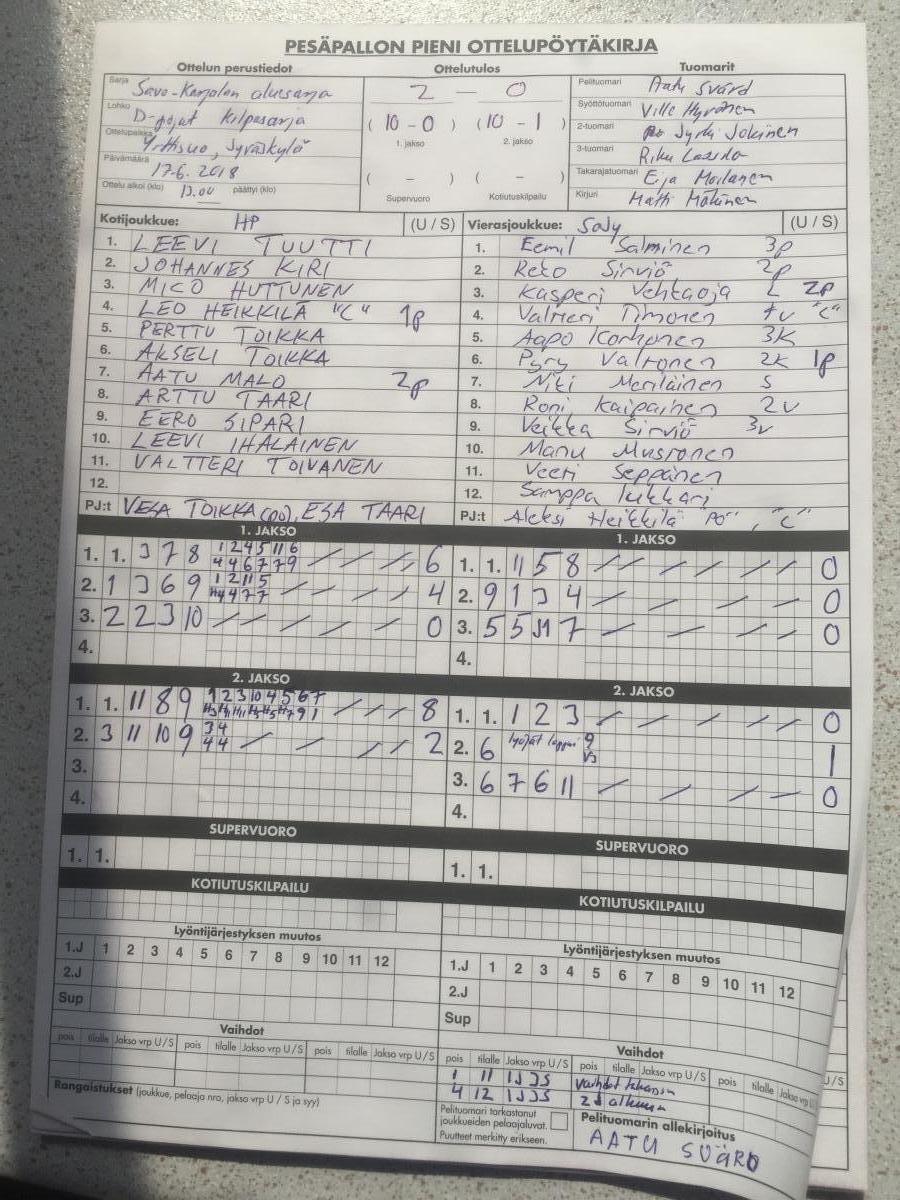 PESÄPALLON PIENI OTTELUPÖYTÄKIRJA
Ottelun perustiedot
Sarja Savo-Karjalan aluesarja
Lohko D-pojat kilpasarja
Ottelupaikka Jyväskylä
Päivämäärä 17.6.2018
Ottelu alkoi (klo) 13.00 päättyi (klo)
Ottelutulos
2 — 0
( 10 - 0 ) ( 10 - 1 )
1. jakso 2. jakso
( - ) ( - )
Supervuoro Kotiutuskilpailu
Tuomarit
Pelituomari Aatu Svärd
Syöttötuomari Ville Hyvönen
2-tuomari Jyrki Jokinen
3-tuomari Riku
Takarajatuomari Eija Moilanen
Kirjuri Matti Mökinen
Kotijoukkue: HP (U / S)
1. LEEVI TUUTTI
2. JOHANNES KIRI
3. MICO HUTTUNEN
4. LEO HEIKKILÄ "C" 1p
5. PERTTU TOIKKA
6. AKSELI TOIKKA
7. AATU MALO 2p
8. ARTTU TAARI
9. EERO SIPARI
10. LEEVI IHALAINEN
11. VALTTERI TOIVANEN
12.
PJ:t VESA TOIKKA (PJ), ESA TAARI
Vierasjoukkue: SoJy (U / S)
1. Eemil Salminen 3p
2. Reko Sirviö 2p
3. Kasperi Vehtaoja L 2p
4. Valtteri Timonen 1v "C"
5. Aapo Korhonen 3K
6. Pyry Valtonen 2K 1p
7. Niki Meriläinen S
8. Roni Kaipainen 2v
9. Veikka Sirviö 3v
10. Manu Mustonen
11. Veeti Seppänen
12. Samppa Lukkari
PJ:t Aleksi Heikkilä "PJ", "C"
1. JAKSO
1. 1. 3 7 8 1 2 4 5 11 6 6
4 4 6 7 7 9
2. 1 3 6 9 1 2 11 5 4
4 4 7 7
3. 2 2 3 10 0
4.
1. JAKSO
1. 1. 11 5 8 0
2. 9 1 3 4 0
3. 5 5 7 0
4.
2. JAKSO
1. 1. 11 8 9 1 2 3 10 4 5 6 7 8
2. 3 11 10 9 3 4 2
4 4
3.
4.
2. JAKSO
1. 1. 1 2 3 0
2. 6 lyöjät loppui 9 1
3. 6 7 6 11 0
4.
SUPERVUORO
1. 1.
SUPERVUORO
1. 1.
KOTIUTUSKILPAILU
KOTIUTUSKILPAILU
Lyöntijärjestyksen muutos
1.J 1 2 3 4 5 6 7 8 9 10 11 12
2.J
Sup
Lyöntijärjestyksen muutos
1.J 1 2 3 4 5 6 7 8 9 10 11 12
2.J
Sup
Vaihdot
pois tilalle Jakso vrp U / S pois tilalle Jakso vrp U / S pois tilalle Jakso vrp U / S
Rangaistukset (joukkue, pelaaja nro, jakso vrp U / S ja syy)
Vaihdot
pois tilalle Jakso vrp U / S pois tilalle Jakso vrp U / S pois tilalle Jakso vrp U / S
1 11 1J 3S vaihdot takaisin
4 12 1J 3S 2J alkuun
Pelituomari tarkastanut
joukkueiden pelaajaluvat.
Puutteet merkitty erikseen.
Pelituomarin allekirjoitus
AATU SVÄRD